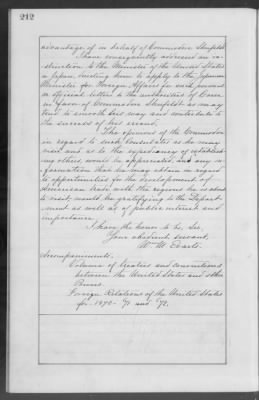 212
advantage of in behalf of Commodore Shufeldt.
I have consequently addressed an in-
struction to the Minister of the United States
in Japan, directing him to apply to the Japanese
Minister for Foreign Affairs for such general
or special letter to the authorities of Corea
in favor of Commodore Shufeldt as may
tend to smooth his way and contribute to
the success of his errand.
The opinions of the Commodore
in regard to such Consulates as he may
visit and as to the expediency of establish-
ing others, would be appreciated, and any in-
formation that he may obtain in regard
to opportunities for the development of
American trade with the regions he is about
to visit, would be gratifying to the Depart-
ment as well as of public interest and
importance.
I have the honor to be, Sir,
Your obedient servant,
Wm M. Evarts.
Accompaniments:
Volume of treaties and conventions
between the United States and other
Powers.
Foreign Relations of the United States
for 1870-'71 and '72.